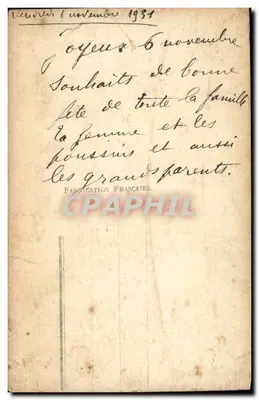 Vendredi 6 novembre 1931
Joyeux 6 novembre
souhaits de bonne
fête de toute la famille
la femme et les
poussins et aussi
les grands parents.
FABRICATION FRANÇAISE
CPAPHIL